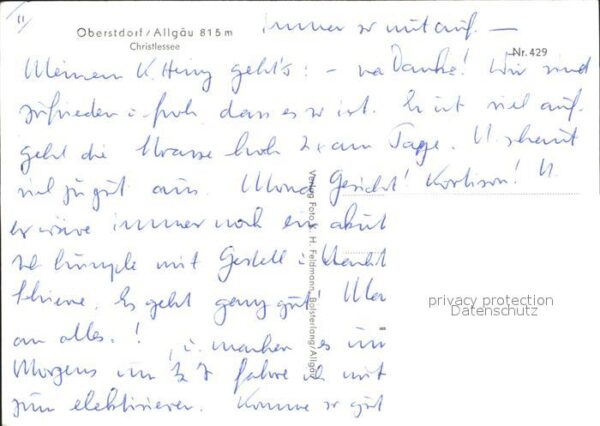 11
immer so mit auf. —
Oberstdorf/Allgäu 815 m
Christlessee
Nr. 429
Meinem K. Heinz geht's: – na Danke! Wir sind
zufrieden u. froh dass es so ist. Er ist viel auf.
geht die Strasse hoch 2x am Tage. U. schaut
viel zu gut aus. Mond Gesicht! Kortison! U.
er wäre immer noch ein
mit Gestell u.
Schiene. Es geht ganz gut!
an alles.! u. machen es im
Morgens um 1/2 7 fahre ich mit
zum elektrisieren. Komme so gut
Verlag Foto K. H. Feldmann, Bolsterlang/Allgäu
privacy protection
Datenschutz